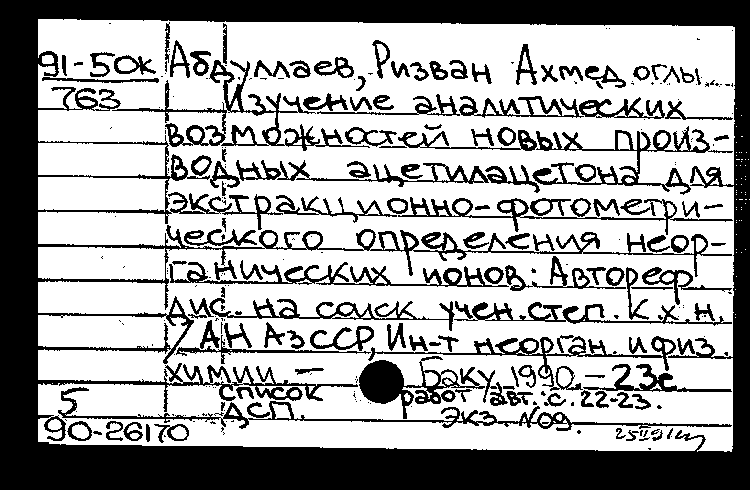 91-50к Абдуллаев, Ризван Ахмед оглы
763 Изучение аналитических
возможностей новых произ-
водных ацетилацетона для
экстракционно-фотометри-
ческого определения неор-
ганических ионов: Автореф.
дис. на соиск. учен. степ. к.х.н.
/АН АзССР, Ин-т неорган. и физ.
химии. — Баку, 1990. – 23с.
5 список работ авт.: с. 22-23.
ДСП. экз. №09.
90-26170